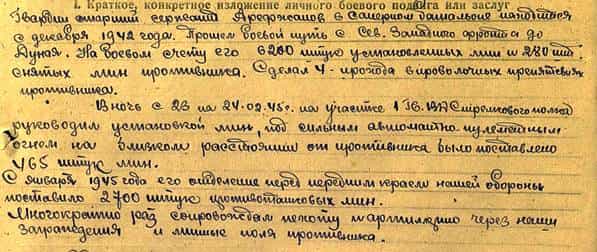 I. Краткое, конкретное изложение личного боевого подвига или заслуг
Гвардии старший сержант Арефжанов в Саперном батальоне находится
с декабря 1942 года. Прошел боевой путь с Сев. Западного фронта до
Дуная. На боевом счету его 6260 штук установленных мин и 280 шт.
снятых мин противника. Сделал 4 - прохода в проволочных препятствиях
противника.
В ночь с 23 на 24.02.45г. на участке 1 Гв. ВДС стрелкового полка
руководил установкой мин, под сильным автоматно пулеметным
огнем на близком расстоянии от противника было поставлено
465 штук мин.
С января 1945 года его отделение перед передним краем нашей обороны
поставило 2700 штук противотанковых мин.
Многократно раз сопровождал пехоту и артиллерию через наши
заграждения и минные поля противника.